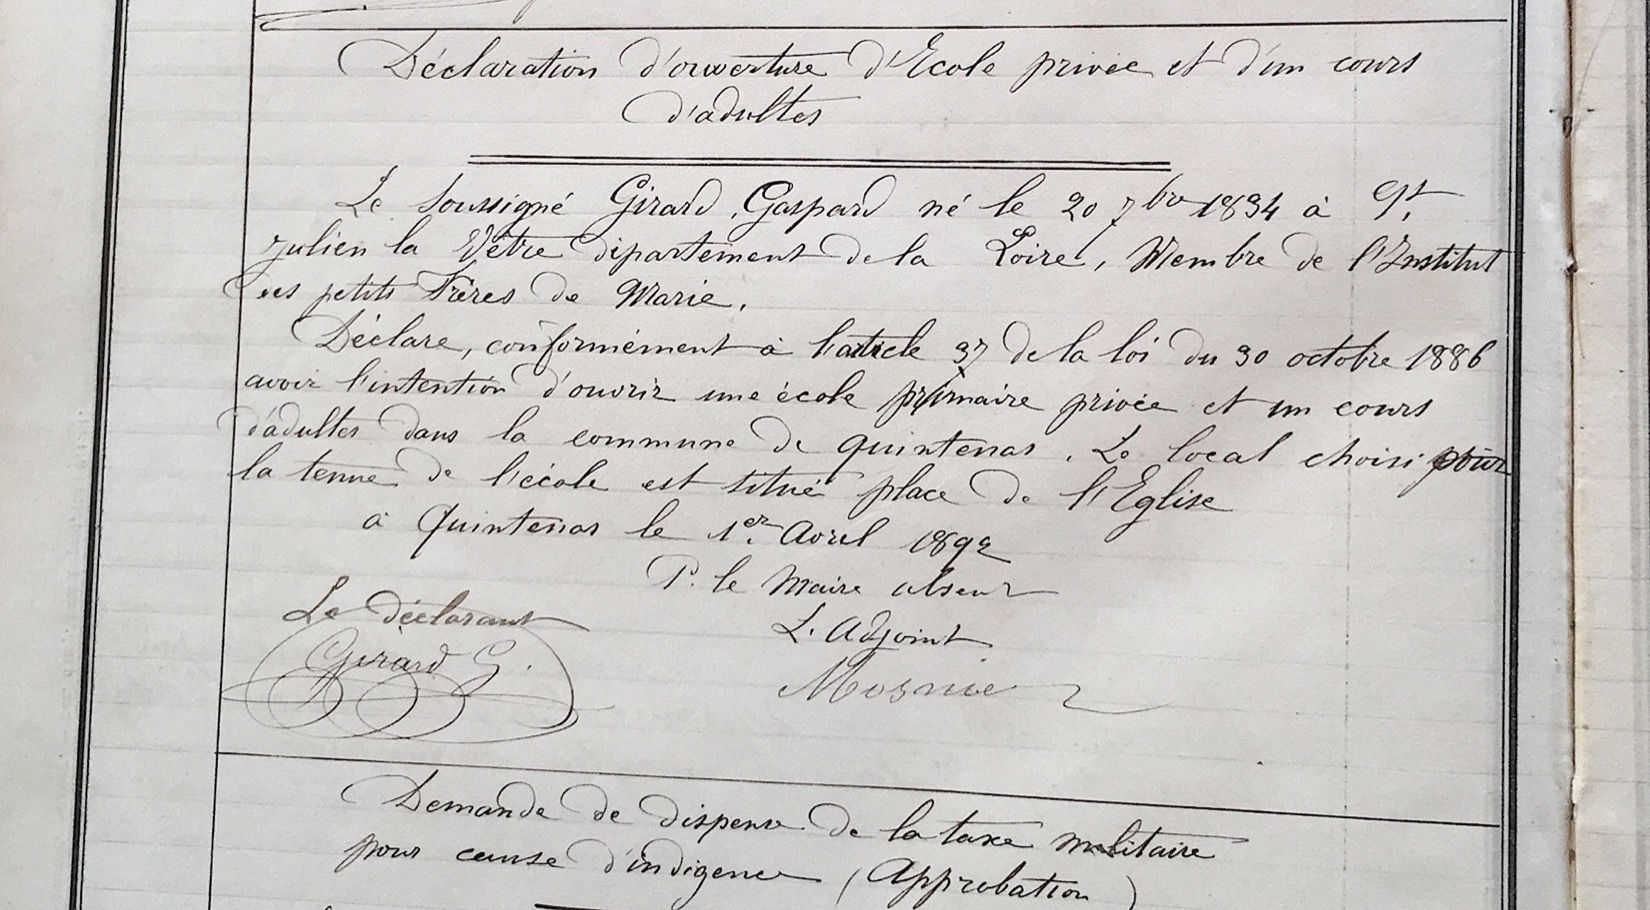 Déclaration d'ouverture d'Ecole privée et d'un cours
d'adultes
Le soussigné Girard, Gaspard né le 20 7bre 1834 à St
Julien la Vêtre département de la Loire, Membre de l'Institut
des petits Frères de Marie.
Déclare, conformément à l'article 37 de la loi du 30 octobre 1886
avoir l'intention d'ouvrir une école primaire privée et un cours
d'adultes dans la commune de quintenas. Le local choisi pour
la tenue de l'école est situé place de l'Eglise
à Quintenas le 1er. Avril 1892
P. le Maire absent
Le déclarant
L. Adjoint
Girard G.
Demande de dispense de la taxe militaire
pour cause d'indigence (Approbation)